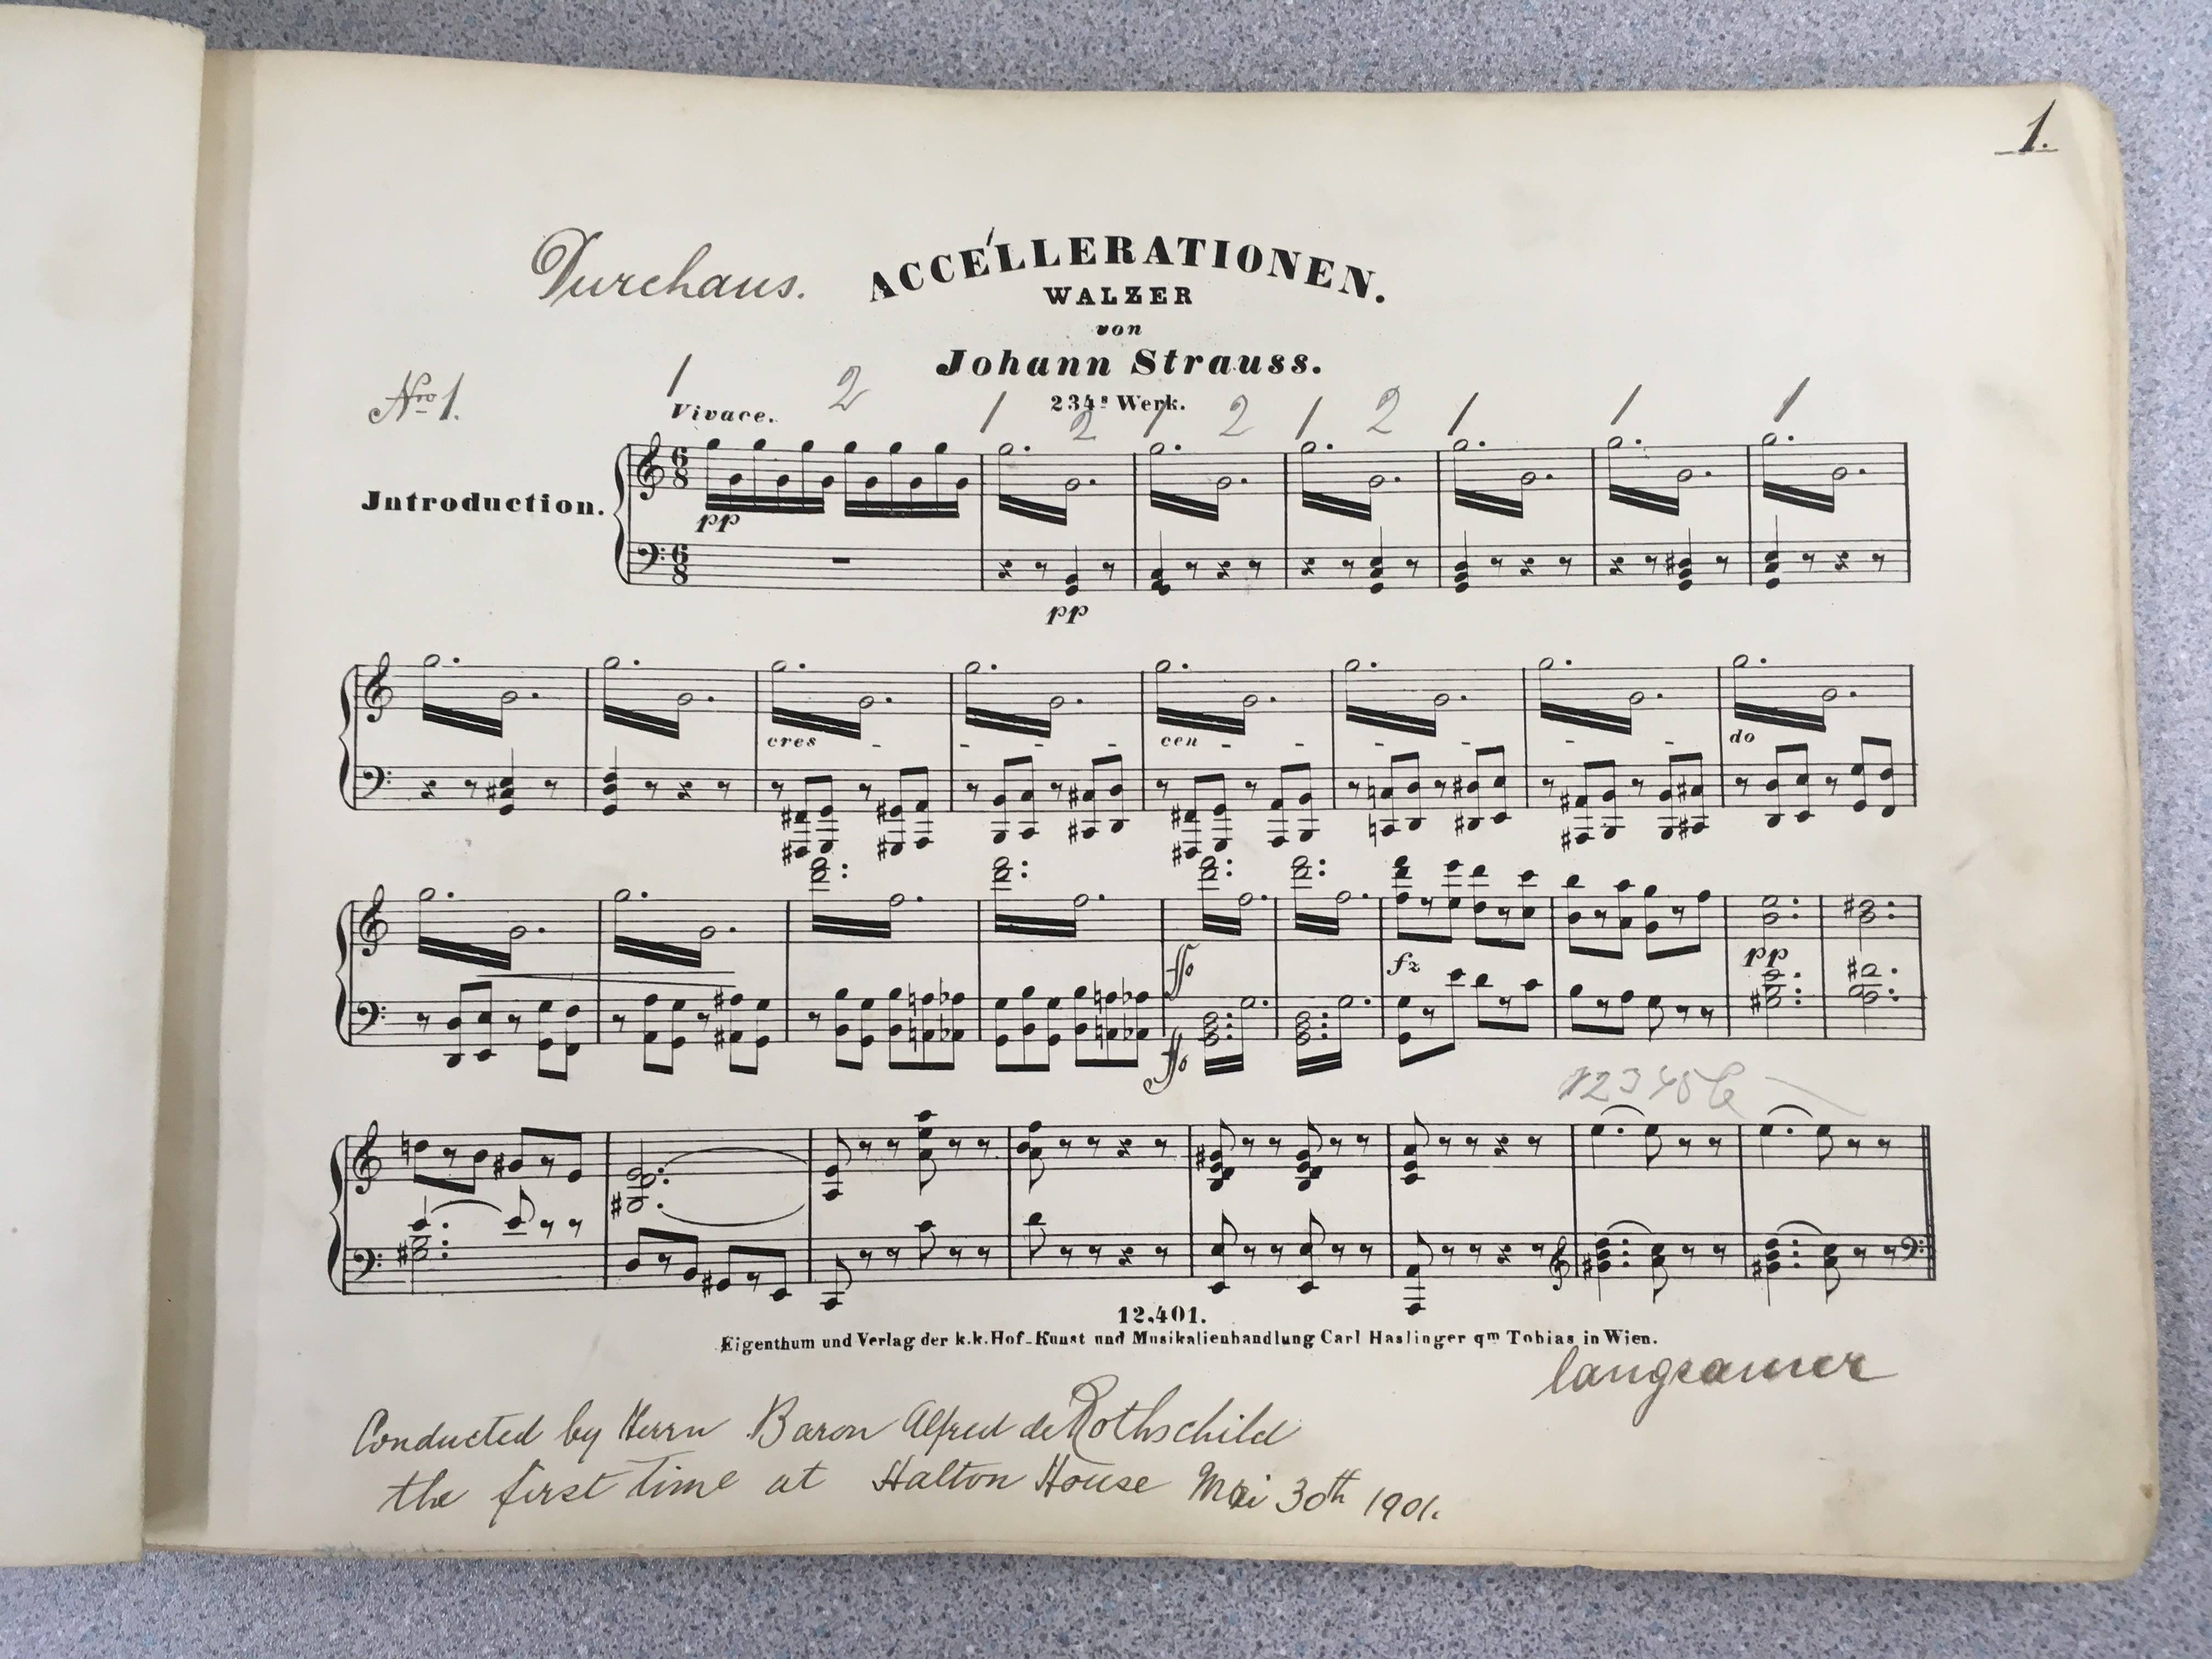 1.
Durchaus.
ACCELLERATIONEN.
WALZER
von
Johann Strauss.
234s Werk.
Nro 1.
1 2 1 2 1 2 1 2 1 1 1
Vivace.
Introduction.
6 8
pp
6 8
pp
cres - - - - cen - - - - - - do
ff
fz
pp
ff
1 2 3 4 5 6
12,401.
Eigenthum und Verlag der k.k. Hof-Kunst und Musikalienhandlung Carl Haslinger qm Tobias in Wien.
langsamer
Conducted by Herrn Baron Alfred de Rothschild
the first time at Halton House Mai 30th 1901.